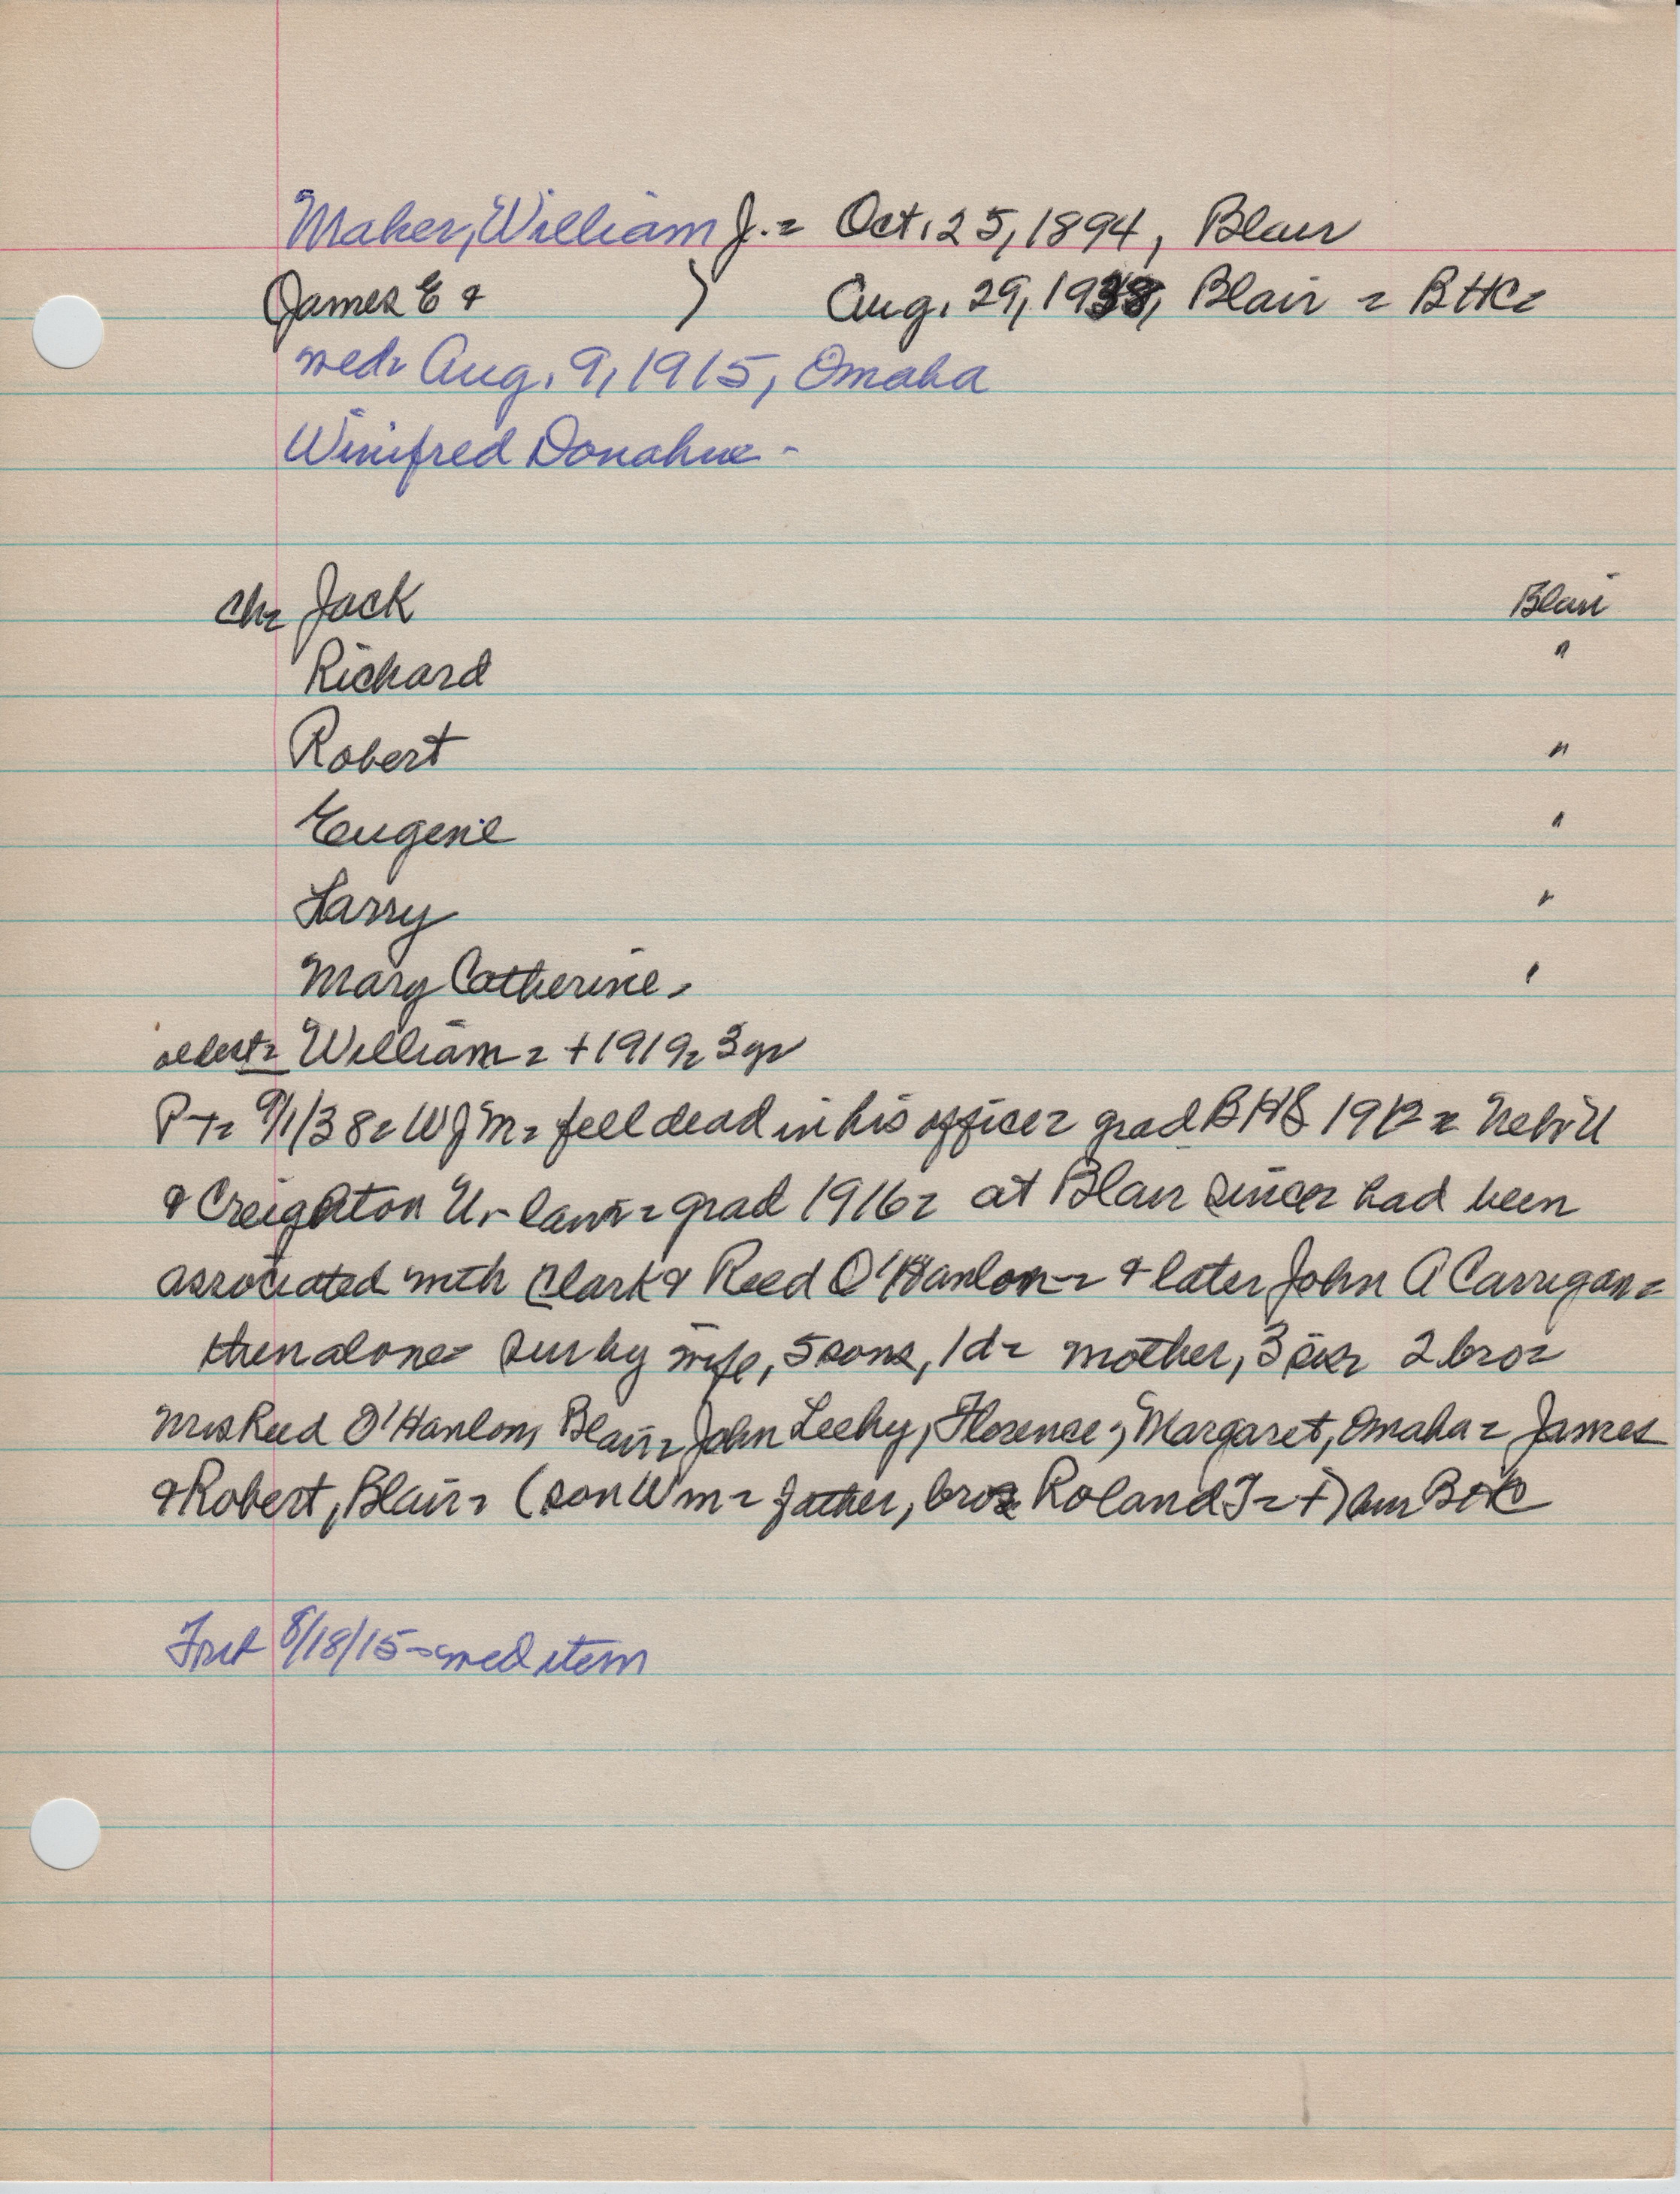 Maher, William J. = Oct. 25, 1894, Blair
James E & ) Aug. 29, 1938, Blair = BHC=
wed= Aug. 9, 1915, Omaha
Winifred Donahue -
Ch= Jack Blair
Richard "
Robert "
Eugene "
Larry "
Mary Catherine - "
oldest= William = + 1919= 3 yr
P+= 9/1/38= WJM= fell dead in his office= grad BHS 1912 = Neb U
& Creighton U - law = grad 1916= at Blair since= had been
associated with Clark & Reed O'Hanlon = & later John A Carrigan =
then alone= sur by wife, 5 sons, 1 d= mother, 3 sis= 2 bro=
Mrs Reed O'Hanlon, Blair= John Leehy, Florence; Margaret, Omaha = James
& Robert, Blair= (son Wm = father, bro= Roland J= +) bur BHC
8/18/15 - wed item